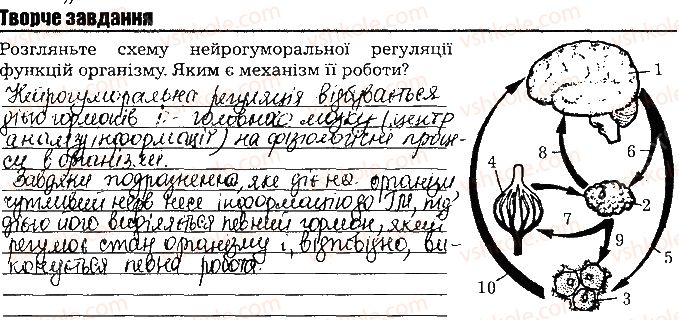 Творче завдання
Розгляньте схему нейрогуморальної регуляції
функцій організму. Яким є механізм її роботи?
Нейрогуморальна регуляція відбувається
дією гормонів і головного мозку (центр
аналізу інформації) на фізіологічні проце-
си в організмі.
Завдяки подразненню, яке діє на організм
чутливий нерв несе інформацію до ГМ, під
дією його виділяється певний гормон, який
регулює стан організму і, відповідно, ви-
конується певна робота.
1
8
6
4
2
7
9
5
10
3